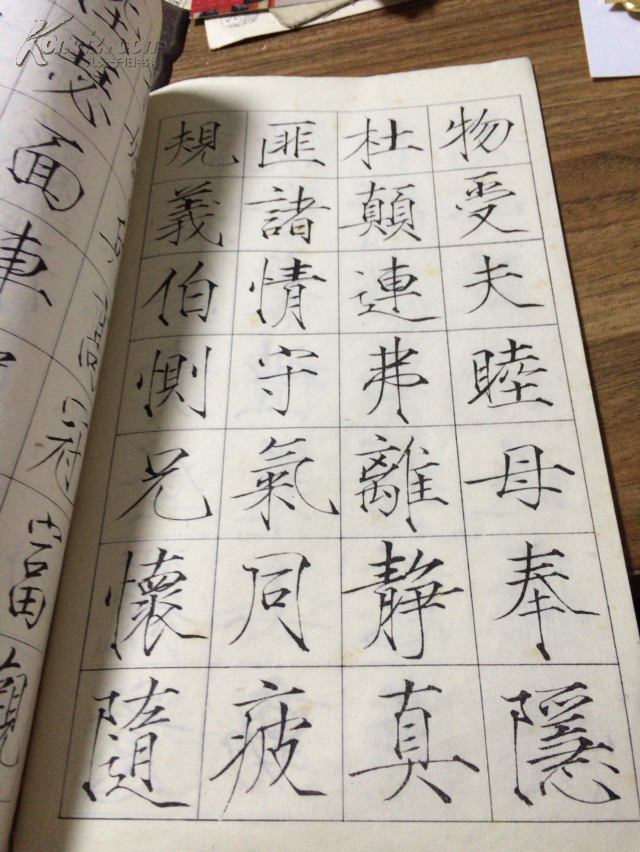 物受夫睦母奉隱
杜顛連弗離静真
匪諸情守氣同疲
規義伯惻兄懷隨
瑟面
富觀
孔夫子旧书网